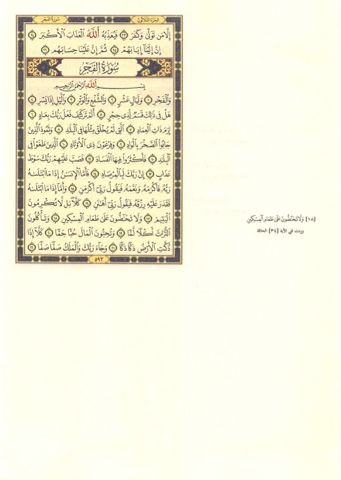 سورة الفجر
الجزء الثلاثون
إِلَّا مَن تَوَلَّىٰ وَكَفَرَ ۝ فَيُعَذِّبُهُ اللَّهُ الْعَذَابَ الْأَكْبَرَ ۝
إِنَّ إِلَيْنَا إِيَابَهُمْ ۝ ثُمَّ إِنَّ عَلَيْنَا حِسَابَهُم ۝
سُورَةُ الْفَجْرِ
بِسْمِ اللَّهِ الرَّحْمَٰنِ الرَّحِيمِ
وَالْفَجْرِ ۝ وَلَيَالٍ عَشْرٍ ۝ وَالشَّفْعِ وَالْوَتْرِ ۝ وَاللَّيْلِ إِذَا يَسْرِ ۝
هَلْ فِي ذَٰلِكَ قَسَمٌ لِّذِي حِجْرٍ ۝ أَلَمْ تَرَ كَيْفَ فَعَلَ رَبُّكَ بِعَادٍ ۝
إِرَمَ ذَاتِ الْعِمَادِ ۝ الَّتِي لَمْ يُخْلَقْ مِثْلُهَا فِي الْبِلَادِ ۝ وَثَمُودَ الَّذِينَ
جَابُوا الصَّخْرَ بِالْوَادِ ۝ وَفِرْعَوْنَ ذِي الْأَوْتَادِ ۝ الَّذِينَ طَغَوْا فِي
الْبِلَادِ ۝ فَأَكْثَرُوا فِيهَا الْفَسَادَ ۝ فَصَبَّ عَلَيْهِمْ رَبُّكَ سَوْطَ
عَذَابٍ ۝ إِنَّ رَبَّكَ لَبِالْمِرْصَادِ ۝ فَأَمَّا الْإِنسَانُ إِذَا مَا ابْتَلَاهُ
رَبُّهُ فَأَكْرَمَهُ وَنَعَّمَهُ فَيَقُولُ رَبِّي أَكْرَمَنِ ۝ وَأَمَّا إِذَا مَا ابْتَلَاهُ
فَقَدَرَ عَلَيْهِ رِزْقَهُ فَيَقُولُ رَبِّي أَهَانَنِ ۝ كَلَّا بَل لَّا تُكْرِمُونَ
الْيَتِيمَ ۝ وَلَا تَحَاضُّونَ عَلَىٰ طَعَامِ الْمِسْكِينِ ۝ وَتَأْكُلُونَ
التُّرَاثَ أَكْلًا لَّمًّا ۝ وَتُحِبُّونَ الْمَالَ حُبًّا جَمًّا ۝ كَلَّا إِذَا
دُكَّتِ الْأَرْضُ دَكًّا دَكًّا ۝ وَجَاءَ رَبُّكَ وَالْمَلَكُ صَفًّا صَفًّا ۝
٥٩٣
[١٨] وَلَا تَحَاضُّونَ عَلَىٰ طَعَامِ الْمِسْكِينِ
وردت في الآية [٣٤] الحاقة